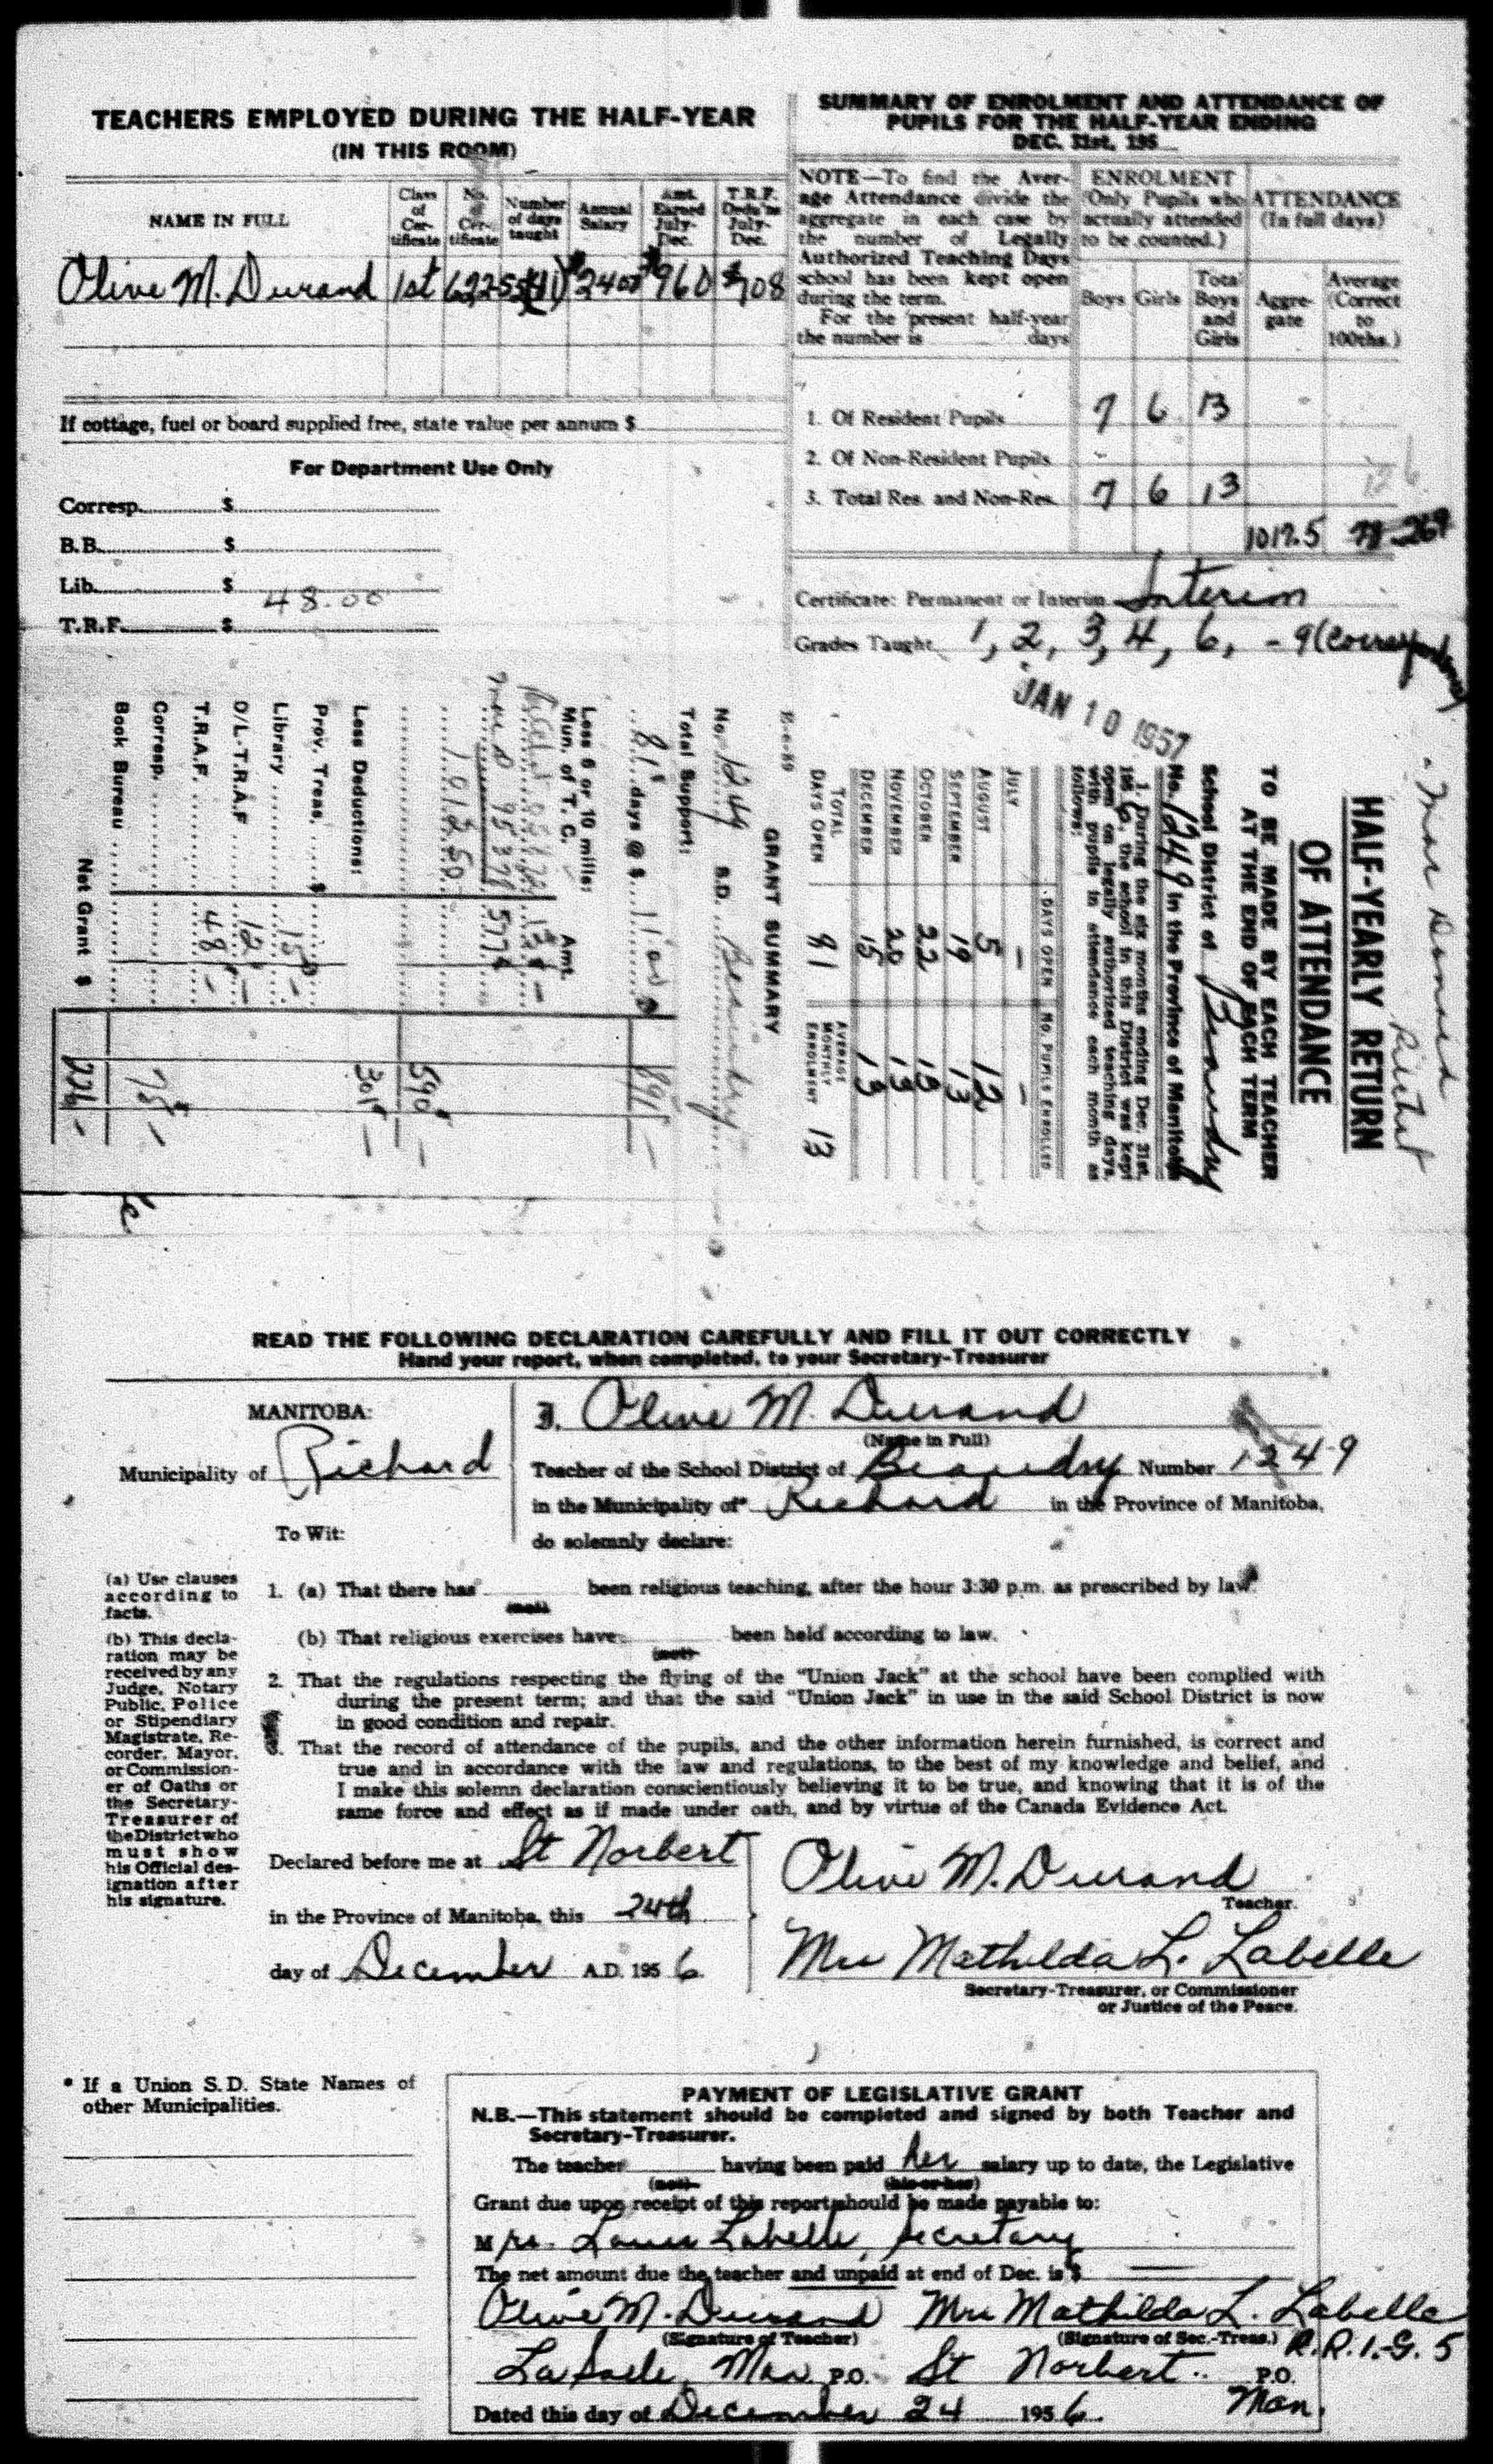 TEACHERS EMPLOYED DURING THE HALF-YEAR
(IN THIS ROOM)
NAME IN FULL
Class of Cer-tificate
No. of Cer-tificate
Number of days taught
Annual Salary
Amt. Earned July-Dec.
T.R.F. Dedu'ns July-Dec.
Olive M. Durand 1st $2400 $960
If cottage, fuel or board supplied free, state value per annum $
For Department Use Only
Corresp. $
B.B. $
Lib. $
48.00
T.R.F. $
SUMMARY OF ENROLMENT AND ATTENDANCE OF
PUPILS FOR THE HALF-YEAR ENDING
DEC. 31st, 195
NOTE—To find the Aver-
age Attendance divide the
aggregate in each case by
the number of Legally
Authorized Teaching Days
school has been kept open
during the term.
For the present half-year
the number is days
ENROLMENT
(Only Pupils who
actually attended
to be counted.)
ATTENDANCE
(In full days)
Boys Girls Total Boys and Girls
Aggre-gate
Average (Correct to 100ths.)
1. Of Resident Pupils 7 6 13
2. Of Non-Resident Pupils -
3. Total Res. and Non-Res. 7 6 13
1017.5
Certificate: Permanent or Interim Interim
Grades Taught 1, 2, 3, 4, 6, - 9 (Correspondence)
JAN 10 1957
HALF-YEARLY RETURN
OF ATTENDANCE
TO BE MADE BY EACH TEACHER
AT THE END OF EACH TERM
School District of Beaudry
No. 1249 in the Province of Manitoba
1. During the six months ending Dec. 31st,
1956, the school in this District was kept
open on legally authorized teaching days,
with pupils in attendance each month as
follows:
DAYS OPEN NO. PUPILS ENROLLED
JULY - -
AUGUST 5 12
SEPTEMBER 19 13
OCTOBER 22 13
NOVEMBER 20 13
DECEMBER 15 13
TOTAL DAYS OPEN 81 AVERAGE MONTHLY ENROLMENT 13
GRANT SUMMARY
No. 1249 S.D. Beaudry
Total Support:
81 days @ $ 11.00 891 -
Less 6 or 10 mills:
Mun. of T. C. Amt.
590
Less Deductions: 301 -
Prov. Treas. $
Library 15 -
D/L-T.R.A.F. 12 -
T.R.A.F. 48 -
Corresp. 75 -
Book Bureau
Net Grant $ 226 -
READ THE FOLLOWING DECLARATION CAREFULLY AND FILL IT OUT CORRECTLY
Hand your report, when completed, to your Secretary-Treasurer
MANITOBA:
Municipality of Richard
To Wit:
I, Olive M. Durand
(Name in Full)
Teacher of the School District of Beaudry Number 1249
in the Municipality of* Richard in the Province of Manitoba,
do solemnly declare:
(a) Use clauses
according to
facts.
(b) This decla-
ration may be
received by any
Judge, Notary
Public, Police
or Stipendiary
Magistrate, Re-
corder, Mayor,
or Commission-
er of Oaths or
the Secretary-
Treasurer of
the District who
must show
his Official des-
ignation after
his signature.
1. (a) That there has been religious teaching, after the hour 3:30 p.m. as prescribed by law.
(not)
(b) That religious exercises have been held according to law.
(not)
2. That the regulations respecting the flying of the "Union Jack" at the school have been complied with
during the present term; and that the said "Union Jack" in use in the said School District is now
in good condition and repair.
3. That the record of attendance of the pupils, and the other information herein furnished, is correct and
true and in accordance with the law and regulations, to the best of my knowledge and belief, and
I make this solemn declaration conscientiously believing it to be true, and knowing that it is of the
same force and effect as if made under oath, and by virtue of the Canada Evidence Act.
Declared before me at St Norbert
in the Province of Manitoba, this 24th
day of December A.D. 1956.
Olive M. Durand
Teacher.
Mrs Mathilda L. Labelle
Secretary-Treasurer, or Commissioner
or Justice of the Peace.
* If a Union S.D. State Names of
other Municipalities.
PAYMENT OF LEGISLATIVE GRANT
N.B.—This statement should be completed and signed by both Teacher and
Secretary-Treasurer.
The teacher having been paid her salary up to date, the Legislative
(not) (his or her)
Grant due upon receipt of this report should be made payable to:
Mrs. Louis Labelle, Secretary
The net amount due the teacher and unpaid at end of Dec. is $
Olive M. Durand Mrs Mathilda L. Labelle
(Signature of Teacher) (Signature of Sec.-Treas.) R.R.1.-G.5
LaSalle, Man. P.O. St Norbert P.O.
Man.
Dated this day of December 24 1956.